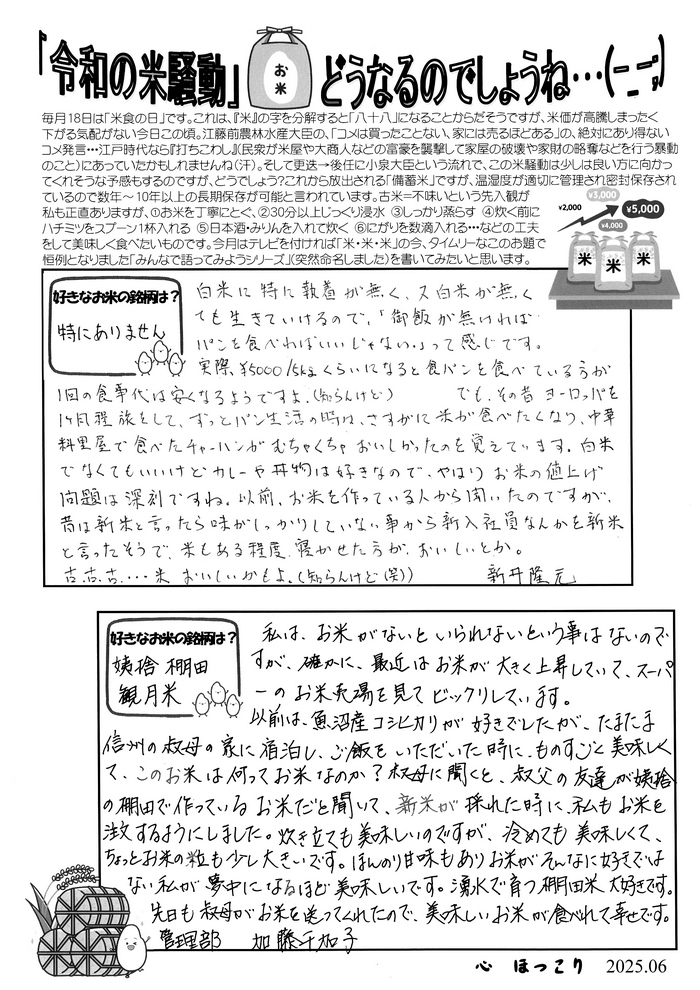 「令和の米騒動」
お
米
どうなるのでしょうね…(ーー;)
毎月18日は「米食の日」です。これは、『米』の字を分解すると「八十八」になることからだそうですが、米価が高騰しまったく
下がる気配がない今日この頃。江藤前農林水産大臣の、「コメは買ったことない、家には売るほどある」の、絶対にあり得ない
コメ発言…江戸時代なら『打ちこわし』(民衆が米屋や大商人などの富豪を襲撃して家屋の破壊や家財の略奪などを行う暴動
のこと)にあっていたかもしれませんね(汗)。そして更迭→後任に小泉大臣という流れで、この米騒動は少しは良い方に向かっ
てくれそうな予感もするのですが、どうでしょう?これから放出される「備蓄米」ですが、温湿度が適切に管理され密封保存され
ているので数年～10年以上の長期保存が可能と言われています。古米=不味いという先入観が
私も正直ありますが、①お米を丁寧にとぐ、②30分以上じっくり浸水 ③しっかり蒸らす ④炊く前に
ハチミツをスプーン1杯入れる ⑤日本酒・みりんを入れて炊く ⑥にがりを数滴入れる…などの工夫
をして美味しく食べたいものです。今月はテレビを付ければ「米・米・米」の今、タイムリーなこのお題で
恒例となりました「みんなで語ってみようシリーズ」(突然命名しました)を書いてみたいと思います。
¥2,000
¥3,000
¥4,000
¥5,000
米
米
米
好きなお米の銘柄は?
特にありません
白米に特に執着が無く、又白米が無く
ても生きていけるので、「御飯が無ければ
パンを食べればいいじゃない。」って感じです。
実際、¥5000/5kgくらいになると食パンを食べている方が
1回の食事代は安くなるようですよ。(知らんけど) でも、その昔ヨーロッパを
1ヶ月程旅をして、ずっとパン生活の時は、さすがに米が食べたくなり、中華
料理屋で食べたチャーハンがむちゃくちゃおいしかったのを覚えています。白米
でなくてもいいけどカレーや丼物は好きなので、やはりお米の値上げ
問題は深刻ですね。以前、お米を作っている人から聞いたのですが、
昔は新米と言ったら味がしっかりしていない事から新入社員なんかを新米
と言ったそうで、米もある程度寝かせた方が、おいしいとか。
古古古・・・・米 おいしいかもよ。(知らんけど(笑))
新井隆元
好きなお米の銘柄は?
姨捨棚田
観月米
私は、お米がないといられないという事はないので
すが、確かに、最近はお米が大きく上昇していて、スーパ
ーのお米売場を見てビックリしています。
以前は、魚沼産コシヒカリが好きでしたが、たまたま
信州の叔母の家に宿泊し、ご飯をいただいた時に、ものすごく美味しく
て、このお米は何ってお米なのか?叔母に聞くと、叔父の友達が姨捨
の棚田で作っているお米だと聞いて、新米が採れた時に、私もお米を
注文するようにしました。炊き立ても美味しいのですが、冷めても美味しくて、
ちょっとお米の粒も少し大きいです。ほんのり甘味もありお米がそんなに好きでは
ない私が夢中になるほど美味しいです。湧水で育つ棚田米大好きです。
先日も叔母がお米を送ってくれたので、美味しいお米が食べれて幸せです。
管理部 加藤千加子
心 ほっこり 2025.06